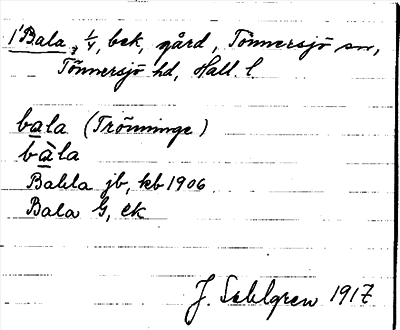 1 Bala, 1/4, bck, gård, Tönnersjö sn,
Tönnersjö hd, Hall. l.
bala (Trönninge)
bàla
Babla jb, kb 1906
Bala G, ek
J. Sahlgren 1917